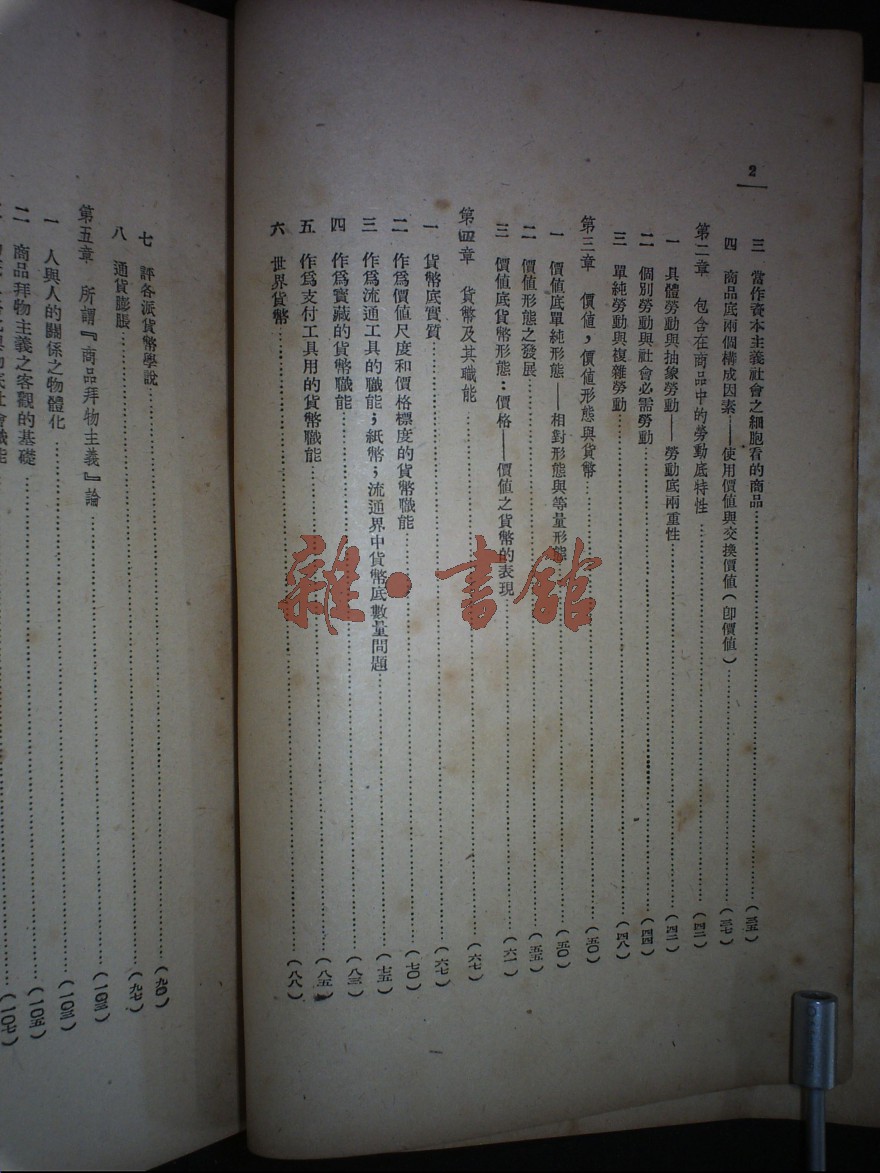 2
三　當作資本主義社會之細胞看的商品……(三五)
四　商品底兩個構成因素——使用價值與交換價值(卽價值)……(三七)
第二章　包含在商品中的勞動底特性……(四二)
一　具體勞動與抽象勞動——勞動底兩重性……(四二)
二　個別勞動與社會必需勞動……(四四)
三　單純勞動與複雜勞動……(四八)
第三章　價值，價值形態與貨幣……(五〇)
一　價值底單純形態——相對形態與等量形態……(五〇)
二　價值形態之發展……(五五)
三　價值底貨幣形態：價格——價值之貨幣的表現……(六一)
第四章　貨幣及其職能……(六七)
一　貨幣底實質……(六七)
二　作爲價值尺度和價格標度的貨幣職能……(七〇)
三　作爲流通工具的職能；紙幣；流通界中貨幣底數量問題……(七五)
四　作爲寶藏的貨幣職能……(八三)
五　作爲支付工具用的貨幣職能……(八五)
六　世界貨幣……(八八)
七　評各派貨幣學說……(九〇)
八　通貨膨脹……(九七)
第五章　所謂『商品拜物主義』論……(一〇三)
一　人與人的關係之物體化……(一〇三)
二　商品拜物主義之客觀的基礎……(一〇五)
(一〇七)
雜·書館